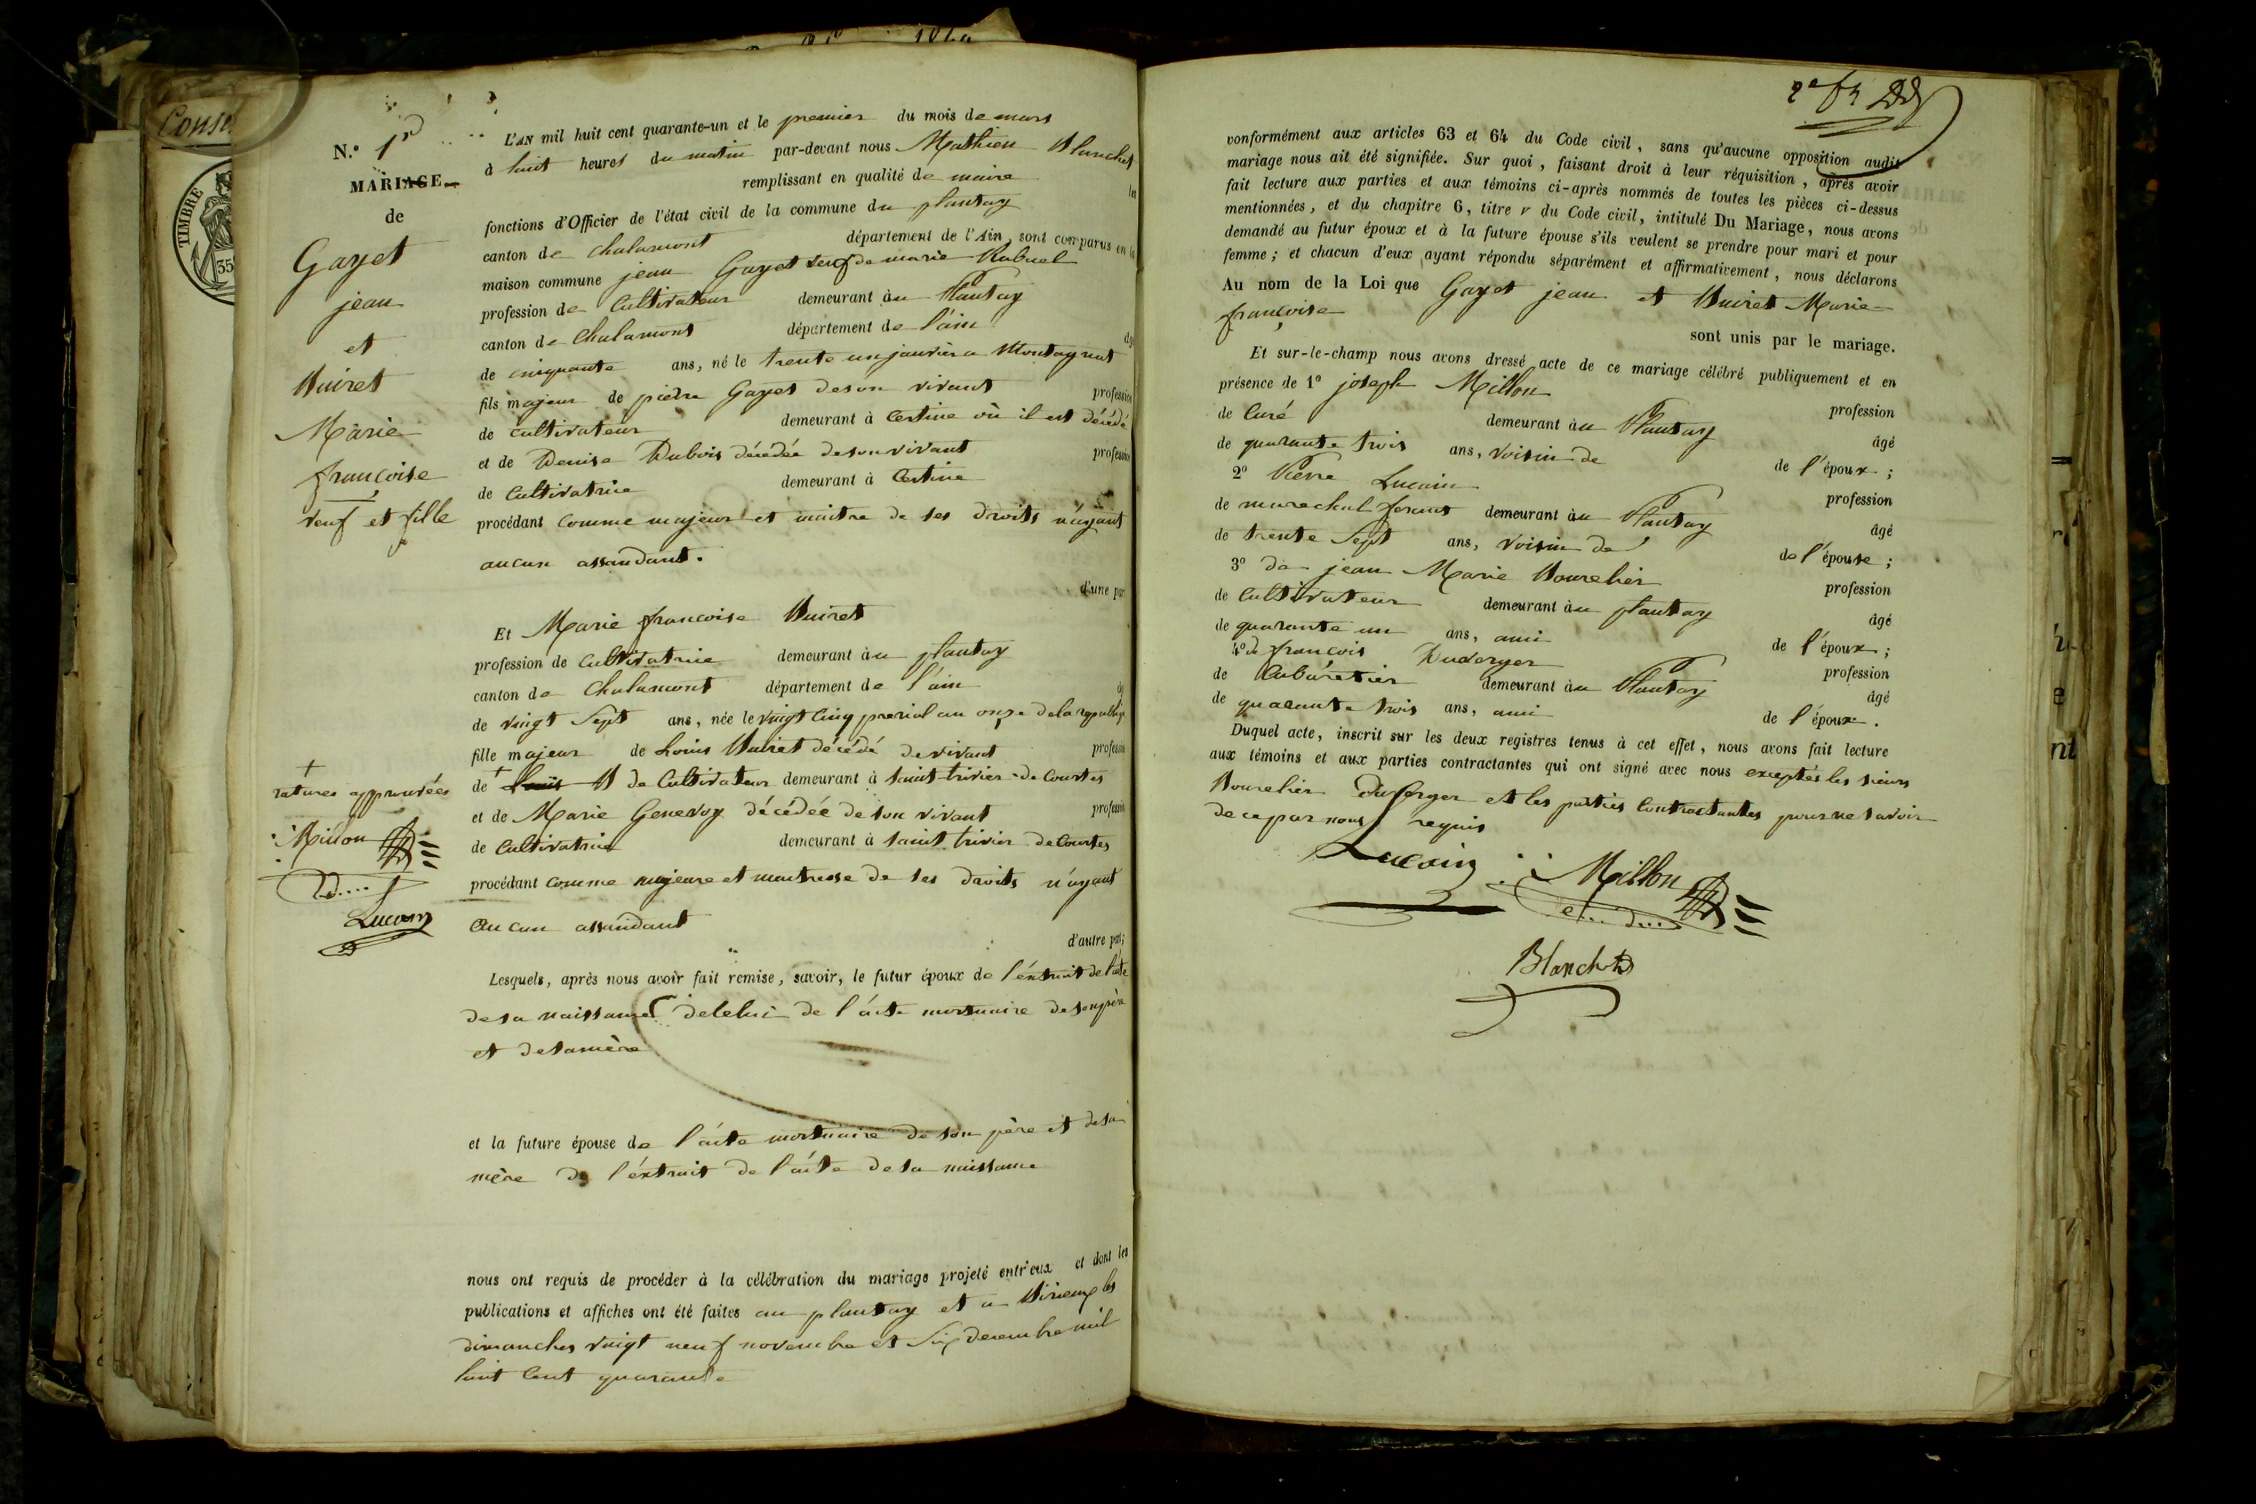 Conse
TIMBRE
35
N.º 1er
MARIAGE
de
Gayet
jean
et
Vuiret
Marie
françoise
veuf et fille
L'AN mil huit cent quarante-un et le premier du mois de mars
à huit heures du matin par-devant nous Mathieu Blanchet
remplissant en qualité de maire les
fonctions d'Officier de l'état civil de la commune du plantay
canton de chalamont département de l'Ain, sont comparus en la
maison commune jean Gayet veuf de marie
profession de Cultivateur demeurant au Plantay
canton de Chalamont département de l'ain
de cinquante ans, né le trente un janvier a Montagnat
fils majeur de pierre Gayet de son vivant profession
de cultivateur demeurant à Certine où il est décédé
et de Denise Dubois décédée de son vivant profession
de Cultivatrice demeurant à Certine
procédant comme majeur et maitre de ses droits n'ayant
aucun assandant.
d'une part
Et Marie françoise Vuiret
profession de Cultivatrice demeurant au plantay
canton de Chalamont département de l'ain
de vingt Sept ans, née le vingt Cinq prerial an onze de la republiq
fille majeur de Louis Vuiret décédé de vivant profession
de + de Cultivateur demeurant à saint-trivier de Courtes
et de Marie Genevoy décédée de son vivant profession
de Cultivatrice demeurant à saint trivier de Courtes
procédant comme majeure et maitresse de ses droits n'ayant
aucun assandant
d'autre part;
+
ratures approuvées
Millon
Lucain
Lesquels, après nous avoir fait remise, savoir, le futur époux de l'éxtrait de l'acte
de sa naissance de celui de l'acte mortuaire de son père
et de sa mère
et la future épouse de l'acte mortuaire de son père et de sa
mère de l'éxtrait de l'acte de sa naissance
nous ont requis de procéder à la célébration du mariage projeté entr'eux et dont les
publications et affiches ont été faites au plantay et a Virieux les
dimanches vingt neuf novembre et Six decembre mil
huit Cent quarante
2e
conformément aux articles 63 et 64 du Code civil, sans qu'aucune opposition audit
mariage nous ait été signifiée. Sur quoi, faisant droit à leur réquisition, après avoir
fait lecture aux parties et aux témoins ci-après nommés de toutes les pièces ci-dessus
mentionnées, et du chapitre 6, titre v du Code civil, intitulé Du Mariage, nous avons
demandé au futur époux et à la future épouse s'ils veulent se prendre pour mari et pour
femme; et chacun d'eux ayant répondu séparément et affirmativement, nous déclarons
Au nom de la Loi que Gayet jean et Vuiret Marie
françoise
sont unis par le mariage.
Et sur-le-champ nous avons dressé acte de ce mariage célébré publiquement et en
présence de 1º joseph Millon profession
de Curé demeurant au Plantay âgé
de quarante trois ans, voisin de de l'époux;
2º Pierre Lucain profession
de marechal ferant demeurant au Plantay âgé
de trente Sept ans, voisin de de l'épouse;
3º de jean Marie Vourelier profession
de Cultivateur demeurant au plantay âgé
de quarante un ans, ami de l'époux;
4º de françois Duverger profession
de Cabaretier demeurant au Plantay âgé
de quarante trois ans, ami de l'époux.
Duquel acte, inscrit sur les deux registres tenus à cet effet, nous avons fait lecture
aux témoins et aux parties contractantes qui ont signé avec nous exceptés les sieurs
Vourelier Duverger et les parties Contractantes pour ne savoir
de ce par nous requis
Lucain Millon
Blanchet